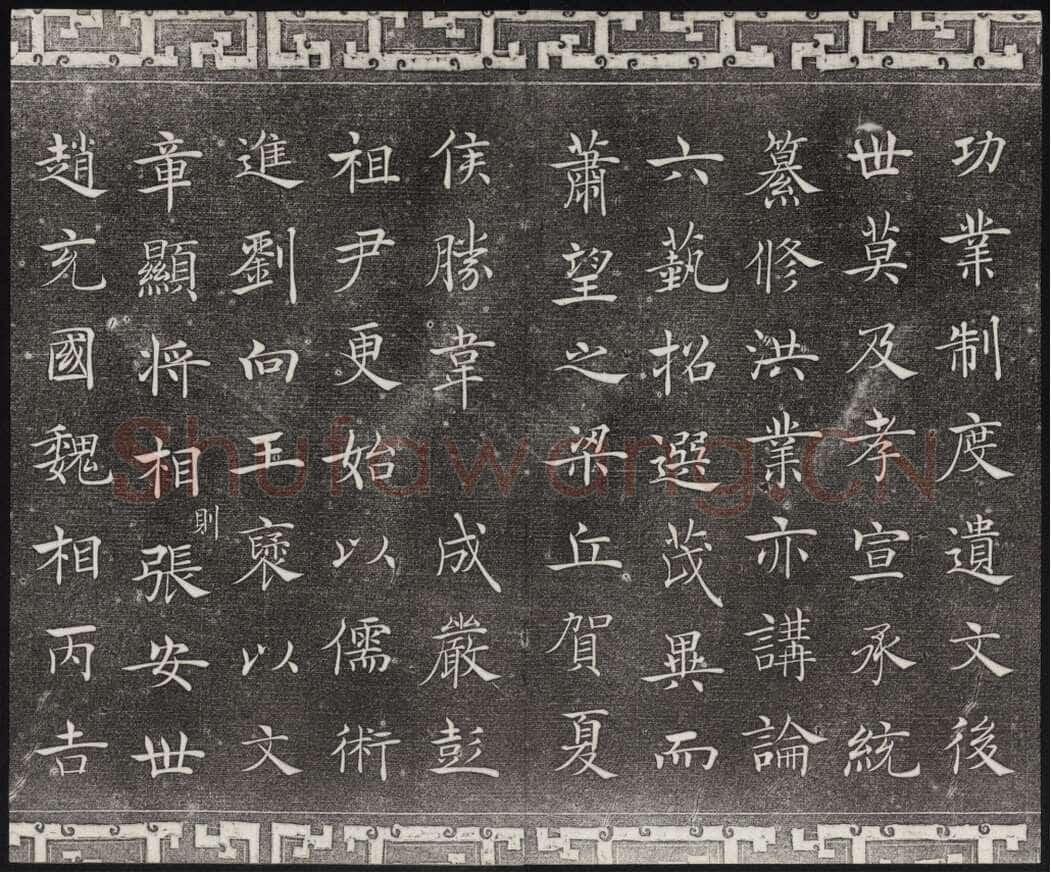 功業制度遺文後
世莫及孝宣承統
纂修洪業亦講論
六藝招選茂異而
蕭望之梁丘賀夏
侯勝韋成嚴彭
祖尹更始以儒術
進劉向王褒以文
章顯將相則張安世
趙充國魏相丙吉
Shufawang.CN